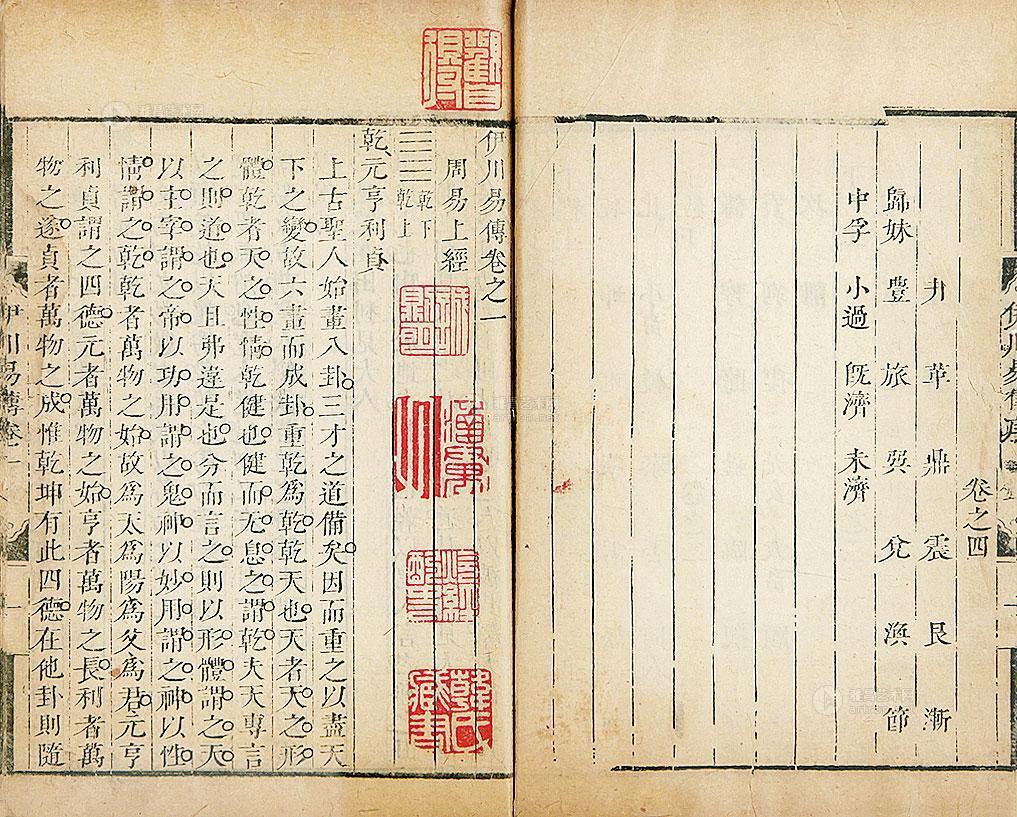 伊川易傳序
卷之四
井 革 鼎 震 艮 漸
歸妹 豊 旅 巽 兌 渙 節
中孚 小過 旣濟 未濟
伊川易傳卷之一
周易上經
乾下
乾上
乾元亨利貞
上古聖人始畫八卦三才之道備矣因而重之以盡天
下之變故六畫而成卦重乾爲乾乾天也天者天之形
體乾者天之性情乾健也健而无息之謂乾夫天專言
之則道也天且弗違是也分而言之則以形體謂之天
以主宰謂之帝以功用謂之鬼神以妙用謂之神以性
情謂之乾乾者萬物之始故爲天爲陽爲父爲君元亨
利貞謂之四德元者萬物之始亨者萬物之長利者萬
物之遂貞者萬物之成惟乾坤有此四德在他卦則隨
伊川易傳卷一
一
韓氏藏書